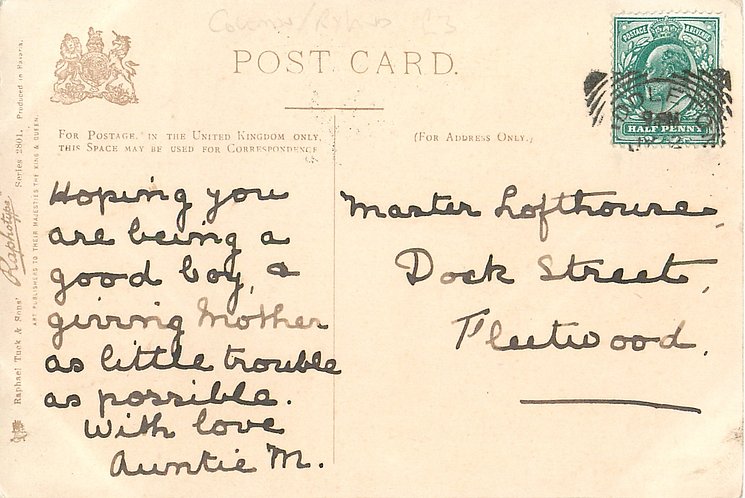 POST CARD.
POSTAGE REVENUE
HALF PENNY
FOR POSTAGE IN THE UNITED KINGDOM ONLY,
THIS SPACE MAY BE USED FOR CORRESPONDENCE
(FOR ADDRESS ONLY.)
Hoping you
are being a
good boy, &
giving Mother
as little trouble
as possible.
With love
Auntie M.
Master Lofthouse,
Dock Street,
Fleetwood.
Raphael Tuck & Sons' "Raphotype" Series 2801. Produced in Bavaria.
ART PUBLISHERS TO THEIR MAJESTIES THE KING & QUEEN.